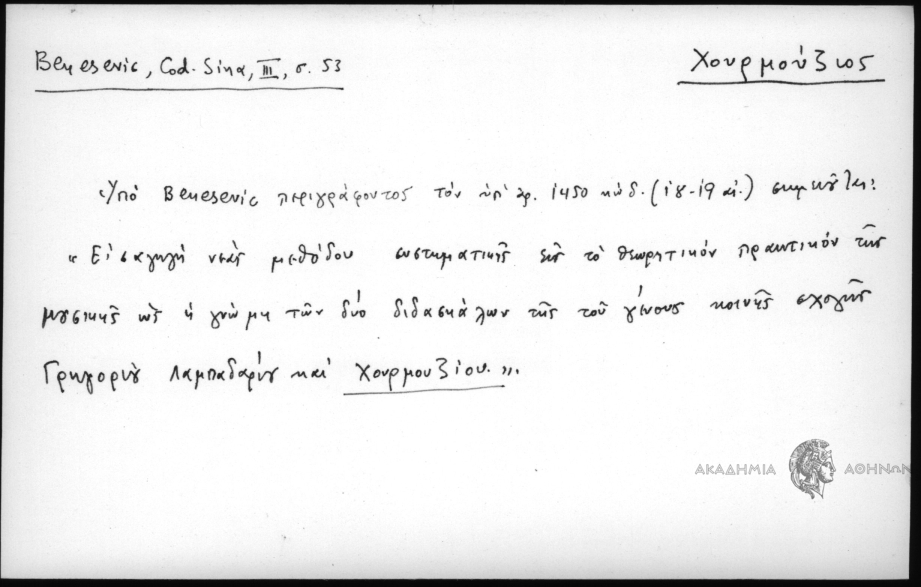 Benesevic, Cod. Sina, III, σ. 53
Χουρμούζιος
Ὑπὸ Benesevic περιγράφοντος τὸν ὑπ' ἀρ. 1450 κώδ. (18-19 αἰ.) σημειοῦται:
« Εἰσαγωγὴ νέας μεθόδου συστηματικῆς εἰς τὸ θεωρητικόν πρακτικόν τῆς
μουσικῆς ὡς ἡ γνώμη τῶν δύο διδασκάλων τῆς τοῦ γένους κοινῆς σχολῆς
Γρηγορίου Λαμπαδαρίου καὶ Χουρμουζίου.».
ΑΚΑΔΗΜΙΑ ΑΘΗΝΩΝ